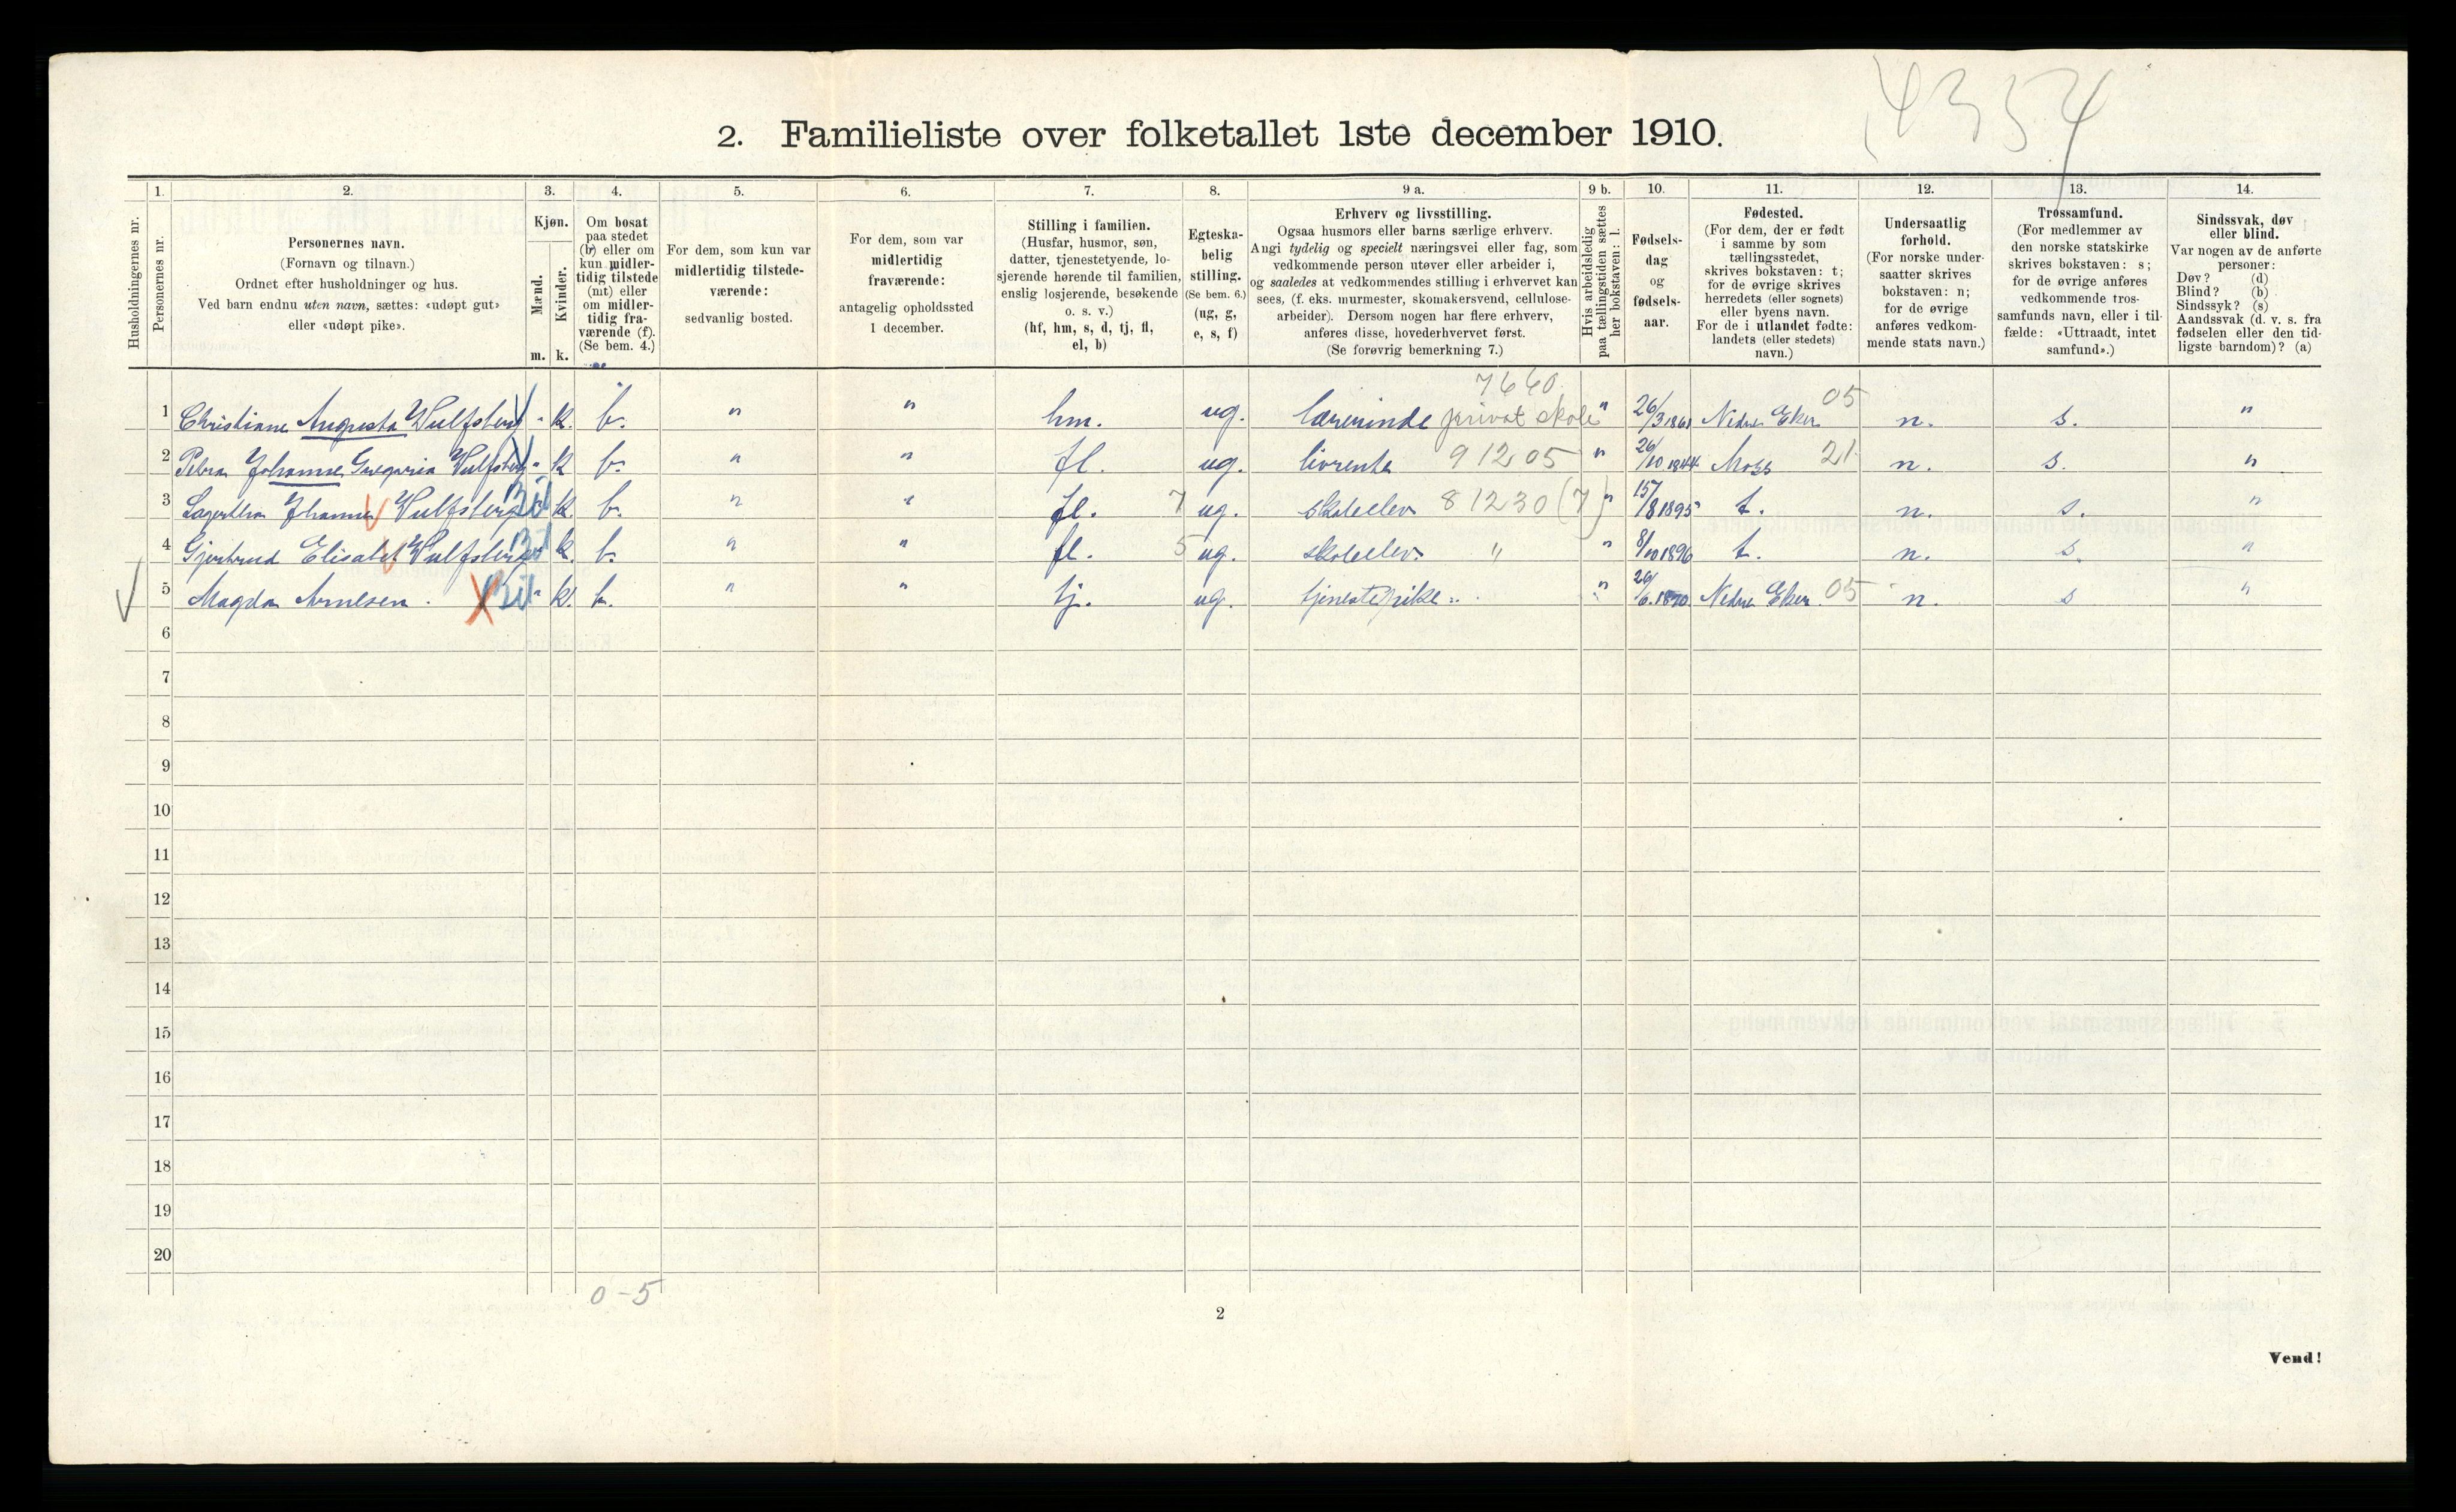 4354
2. Familieliste over folketallet 1ste december 1910.
1. 2. 3. 4. 5. 6. 7. 8. 9 a. 9 b. 10. 11. 12. 13. 14.
Husholdningernes nr.
Personernes nr.
Personernes navn.
(Fornavn og tilnavn.)
Ordnet efter husholdninger og hus.
Ved barn endnu uten navn, sættes: «udøpt gut»
eller «udøpt pike».
Kjøn.
Mænd.
Kvinder.
m. k.
Om bosat
paa stedet
(b) eller om
kun midler-
tidig tilstede
(mt) eller
om midler-
tidig fra-
værende (f).
(Se bem. 4.)
For dem, som kun var
midlertidig tilstede-
værende:
sedvanlig bosted.
For dem, som var
midlertidig
fraværende:
antagelig opholdssted
1 december.
Stilling i familien.
(Husfar, husmor, søn,
datter, tjenestetyende, lo-
sjerende hørende til familien,
enslig losjerende, besøkende
o. s. v.)
(hf, hm, s, d, tj, fl,
el, b)
Egteska-
belig
stilling.
(Se bem. 6.)
(ug, g,
e, s, f)
Erhverv og livsstilling.
Ogsaa husmors eller barns særlige erhverv.
Angi tydelig og specielt næringsvei eller fag, som
vedkommende person utøver eller arbeider i,
og saaledes at vedkommendes stilling i erhvervet kan
sees, (f. eks. murmester, skomakersvend, cellulose-
arbeider). Dersom nogen har flere erhverv,
anføres disse, hovederhvervet først.
(Se forøvrig bemerkning 7.)
Hvis arbeidsledig
paa tællingstiden sættes
her bokstaven: l.
Fødsels-
dag
og
fødsels-
aar.
Fødested.
(For dem, der er født
i samme by som
tællingsstedet,
skrives bokstaven: t;
for de øvrige skrives
herredets (eller sognets)
eller byens navn.
For de i utlandet fødte:
landets (eller stedets)
navn.)
Undersaatlig
forhold.
(For norske under-
saatter skrives
bokstaven: n;
for de øvrige
anføres vedkom-
mende stats navn.)
Trossamfund.
(For medlemmer av
den norske statskirke
skrives bokstaven: s;
for de øvrige anføres
vedkommende tros-
samfunds navn, eller i til-
fælde: «Uttraadt, intet
samfund».)
Sindssvak, døv
eller blind.
Var nogen av de anførte
personer:
Døv? (d)
Blind? (b)
Sindssyk? (s)
Aandssvak (d. v. s. fra
fødselen eller den tid-
ligste barndom)? (a)
7660
1 Christiane Augusta Wulfsberg " k. b. " " hm. ug. lærerinde privat skole " 26/3 1861 Nedre Eker 05 n. s. "
2 Petra Johanne Gregoria Wulfsberg " k b. " " fl. ug. livrente 91205 " 26/10 1844 Moss 21 n. s. "
3 Lagertha Johanne Wulfsberg k. b. " " fl. 7 ug. skoleelev 81230 (7) " 15/8 1895 t. n. s. "
4 Gjertrud Elisabet Wulfsberg k. b. " " fl. 5 ug. skoleelev. " " 8/10 1896 t. n. s. "
5 Magda Arnesen. " k. b. " " tj. ug. tjenestepike. " /6. 1890 Nedre Eker 05 n. s "
6
7
8
9
10
11
12
13
14
15
16
17
18
19
20
0-5
2
Vend!